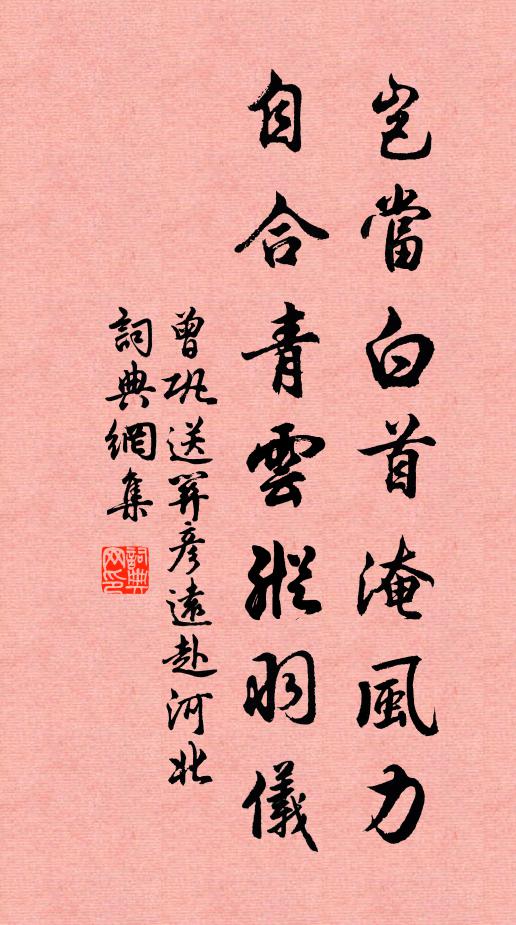 豈當白首淹風力
自合青雲縱羽儀
曾巩送關彥遠赴河北
詞典網集
詞典網印